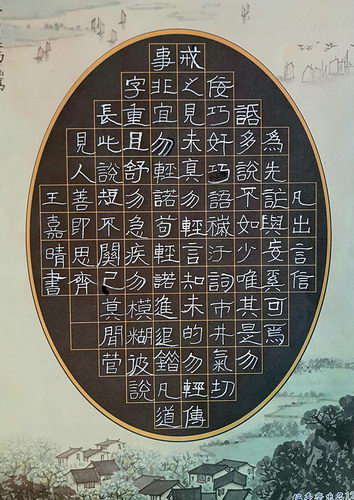 凡出言信
為先詐與妄奚可焉
話多說不如少唯其是勿
佞巧奸巧語穢汙詞市井氣切
戒之見未真勿輕言知未的勿輕傳
事非宜勿輕諾苟輕諾進退錯凡道
字重且舒勿急疾勿模糊彼說
長此說短不關己莫閒管
見人善即思齊
王嘉晴書